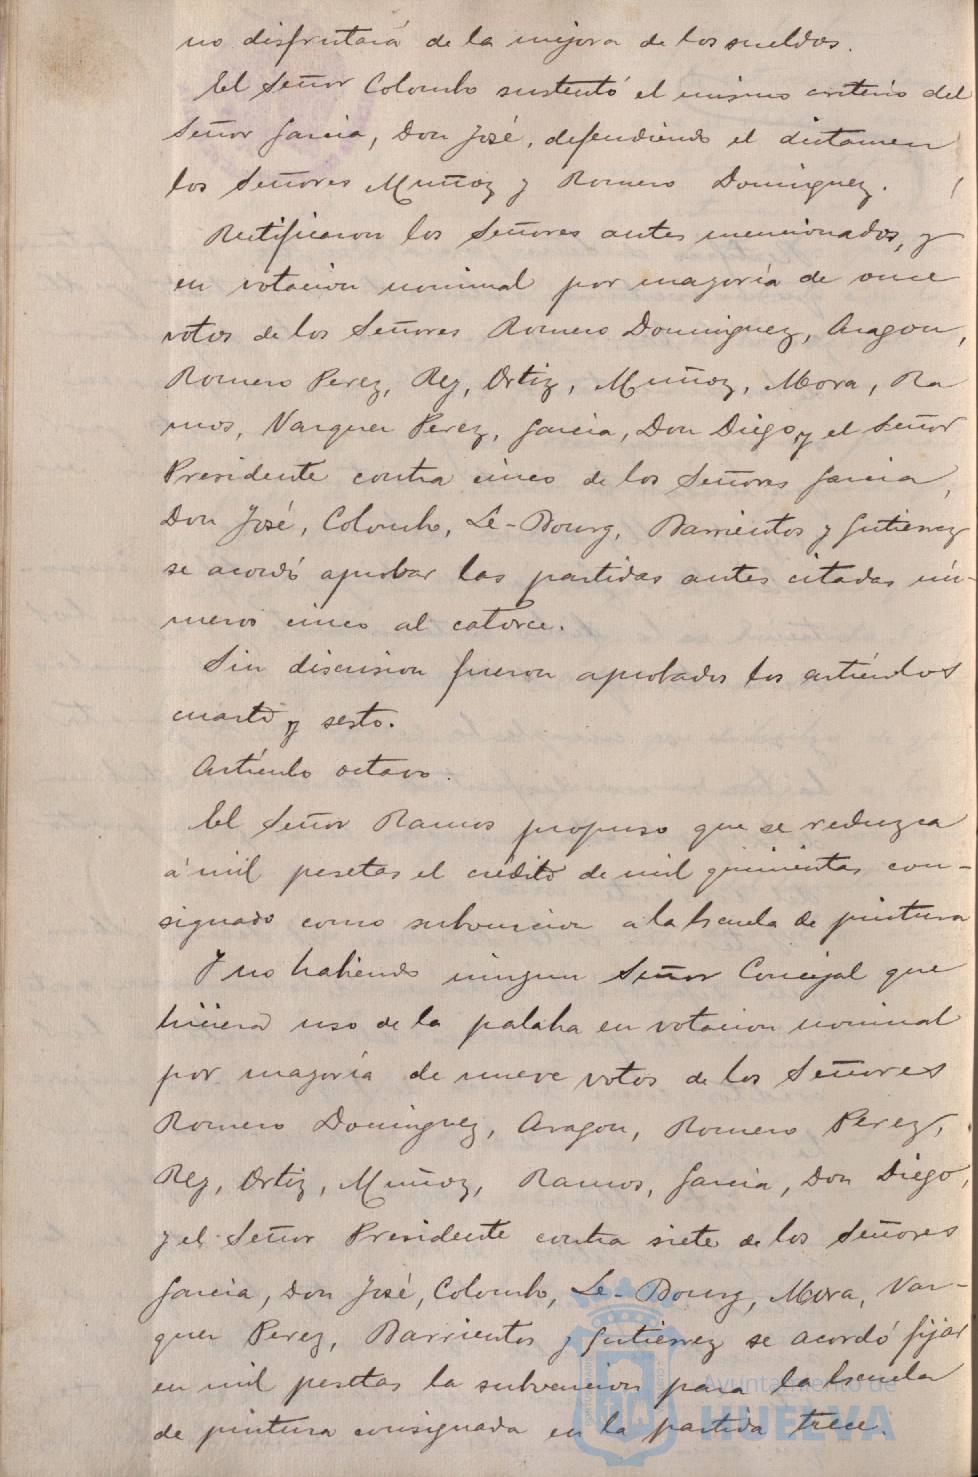 no disfrutará de la mejora de los sueldos.
El Señor Colombo sustentó el mismo criterio del
Señor Garcia, Don José, defendiendo el dictamen
los Señores Muñoz y Romero Dominguez.
Rectificaron los Señores antes mencionados, y
en votacion nominal por mayoría de once
votos de los Señores Romero Dominguez, Aragon,
Romero Perez, Rey, Ortiz, Muñoz, Mora, Ra
mos, Vazquez Perez, Garcia, Don Diego, y el Señor
Presidente contra cinco de los Señores Garcia,
Don José, Colombo, Le-Bourg, Barrientos y Gutierrez
se acordó aprobar las partidas antes citadas nú-
meros cinco al catorce.
Sin discusion fueron aprobados los artículos
cuarto y sesto.
Artículo octavo.
El Señor Ramos propuso que se reduzca
á mil pesetas el crédito de mil quinientas con-
signado como subvencion a la Escuela de pintura
Y no habiendo ningun Señor Concejal que
hiciera uso de la palabra en votacion nominal
por mayoría de nueve votos de los Señores
Romero Dominguez, Aragon, Romero Perez,
Rey, Ortiz, Muñoz, Ramos, Garcia, Don Diego,
y el Señor Presidente contra siete de los Señores
Garcia, Don José, Colombo, Le-Bourg, Mora, Vaz-
quez Perez, Barrientos y Gutierrez se acordó fijar
en mil pesetas la subvencion para la Escuela
de pintura consignada en la partida trece.
Ayuntamiento de
HUELVA